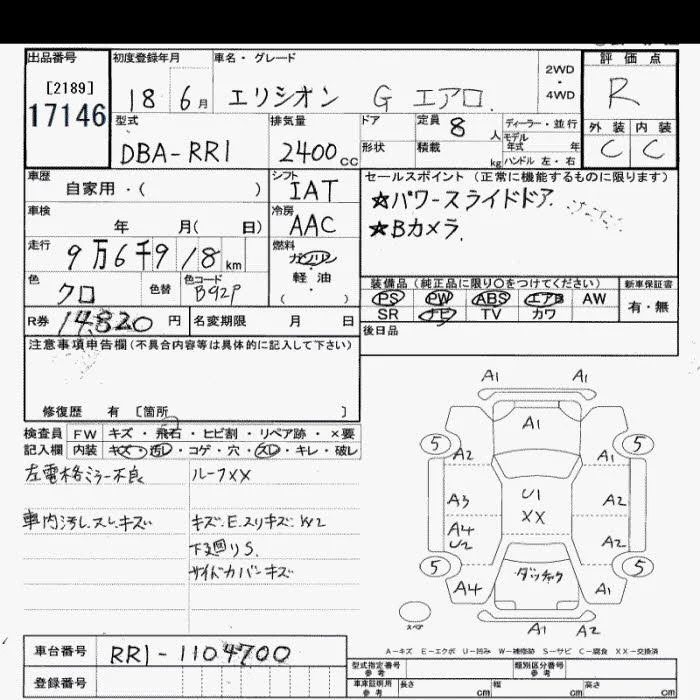 出品番号 初度登録年月 車名・グレード 2WD ・ 4WD 評価点
[2189]
17146 18 6月 エリシオン G エアロ R
型式 排気量 ドア 定員 8人 ディーラー・並行 外装 内装
DBA-RR1 2400cc 形状 積載 kg モデル年式 年 C C
ハンドル 左・右
車歴 シフト セールスポイント (正常に機能するものに限ります)
自家用・( ) IAT ☆パワースライドドア
車検 冷房 ☆Bカメラ
年 月( 日) AAC
走行 燃料
9万6千918km ガソリン
軽・油
( )
色 色替 色コード 装備品(純正品に限り○をつけてください) 新車保証書
クロ B92P PS PW ABS エアB AW 有・無
SR ナビ TV カワ
R券 14,820円 名変期限 月 日 後日品
注意事項申告欄(不具合内容等は具体的に記入して下さい)
修復歴 有 [箇所 ]
検査員 FW キズ・飛石・ヒビ割・リペア跡・×要
記入欄 内装 キズ・汚レ・コゲ・穴・スレ・キレ・破レ
左電格ミラー不良 ルーフXX
車内汚レ.スレ.キズ キズ.E.スリキズ.W2
下廻りS.
サイドカバーキズ
A1 A1
A1
5 5
A2
A3 U1 A2
XX
A4
U2 A2
5 5
ダッチャク
A4 A1
スペア A1 A2
A-キズ E-エクボ U-凹み W-補修跡 S-サビ C-腐食 XX-交換済
車台番号 RR1-1104700
登録番号
型式指定番号 参考 類別区分番号 参考
車庫証明用 参考 長さ cm 幅 cm 高さ cm